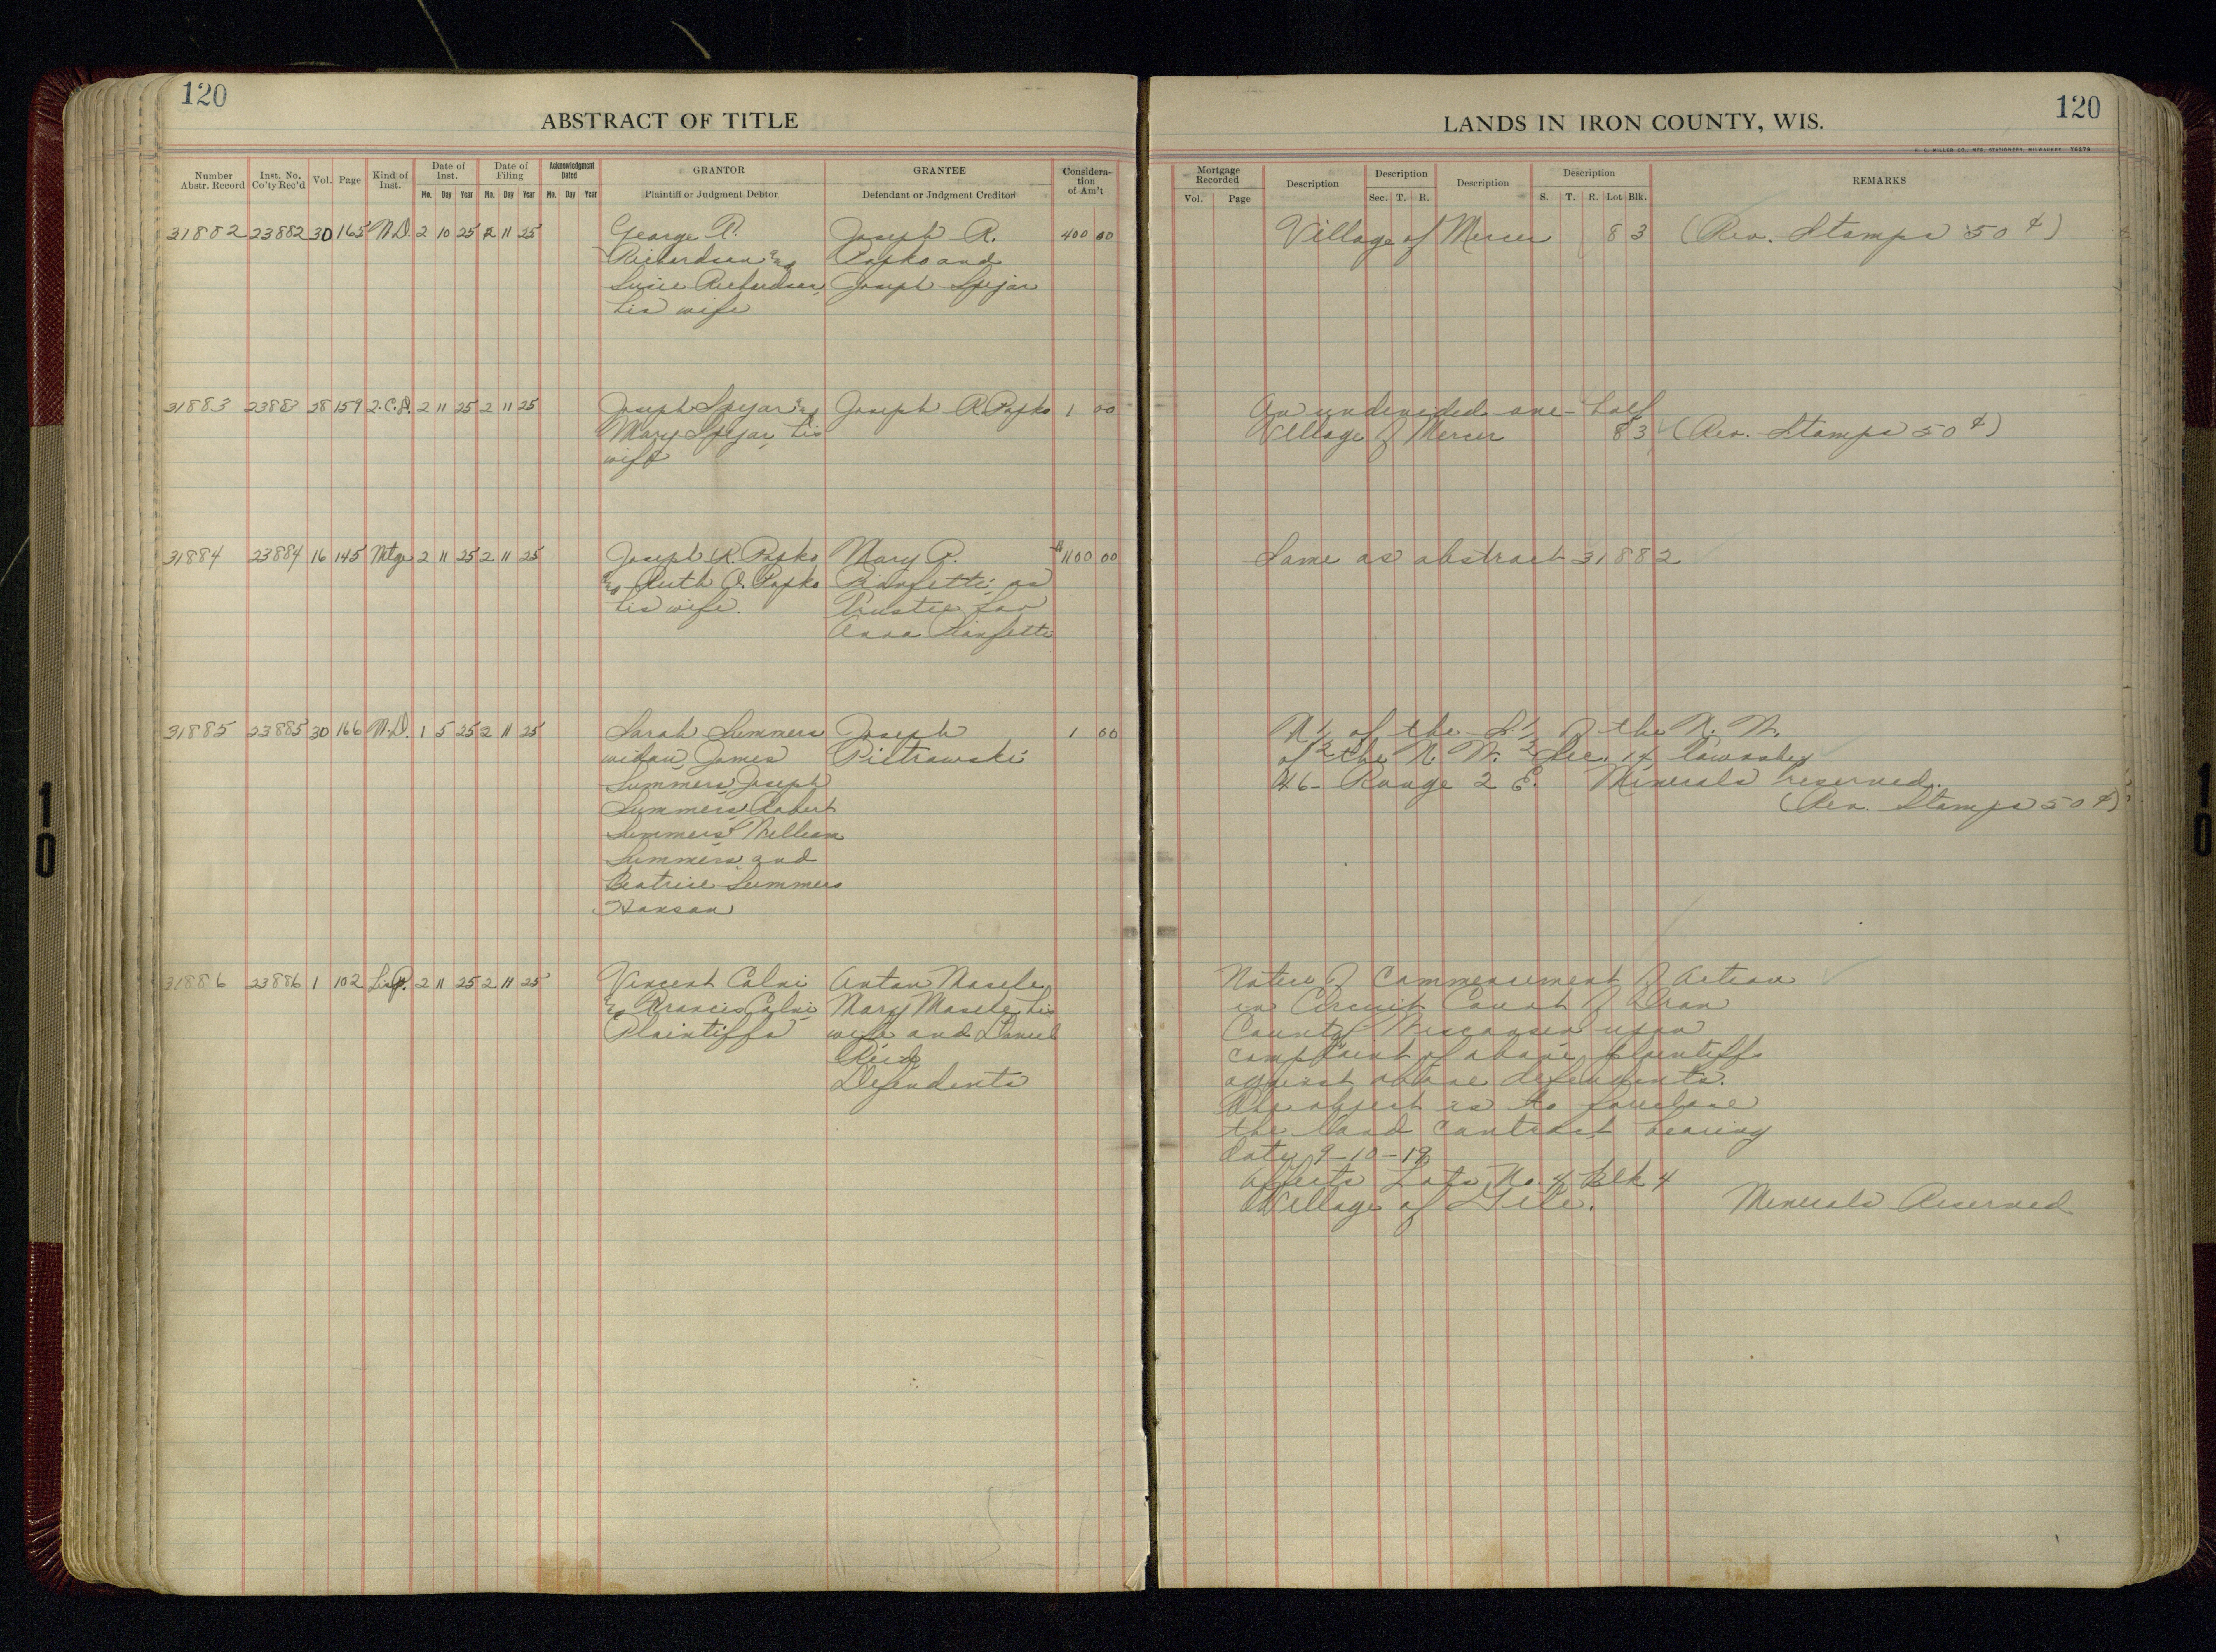 120
ABSTRACT OF TITLE
Number Abstr. Record
Inst. No. Co'ty Rec'd
Vol.
Page
Kind of Inst.
Date of Inst.
Mo. Day Year
Date of Filing
Mo. Day Year
Acknowledgment Dated
Mo. Day Year
GRANTOR
Plaintiff or Judgment Debtor
GRANTEE
Defendant or Judgment Creditor
Consideration of Am't
31882 23882 30 165 W.D. 2 10 25 2 11 25 George R. Joseph R. 400 00
Richardson and Popko and
Susie Richardson, Joseph Spejar
his wife
31883 23883 28 159 2.C.D. 2 11 25 2 11 25 Joseph Spejar and Joseph R. Popko 1 00
Mary Spejar, his
wife
31884 23884 16 145 Mtge 2 11 25 2 11 25 Joseph R. Popko Mary P. $1100 00
and Ruth O. Popko as
his wife. Trustee for
Anna
31885 23885 30 166 W.D. 1 5 25 2 11 25 Sarah Summers Joseph 1 00
widow, James Pietrowski
Summers, Joseph
Summers, Robert
Summers, William
Summers and
Beatrice Summers
Hanson
31886 23886 1 102 Lis P. 2 11 25 2 11 25 Vincent Calvi Anton Masele
& Francis Calvi Mary Masele his
Plaintiffs wife and Daniel
Reid
Defendants
120
LANDS IN IRON COUNTY, WIS.
H. C. MILLER CO., MFG. STATIONERS, MILWAUKEE
Mortgage Recorded
Vol. Page
Description
Description
Sec. T. R.
Description
Description
S. T. R. Lot Blk.
REMARKS
Village of Mercer 8 3 (Rev. Stamps 50¢)
An undivided one-half
Village of Mercer 8 3 (Rev. Stamps 50¢)
Same as abstract 31882
N½ of the S½ of the N.W.
of the N.W. Sec. 14 Township
46- Range 2 E. Minerals reserved.
(Rev. Stamps 50¢)
Notice of Commencement of Action
in Circuit Court of Iron
County, Wisconsin upon
complaint of above plaintiffs
against above defendants.
The object is to foreclose
the land contract bearing
date 9-10-19
Affects Lots No. 4 Blk 4
Village of Gile. Minerals Reserved